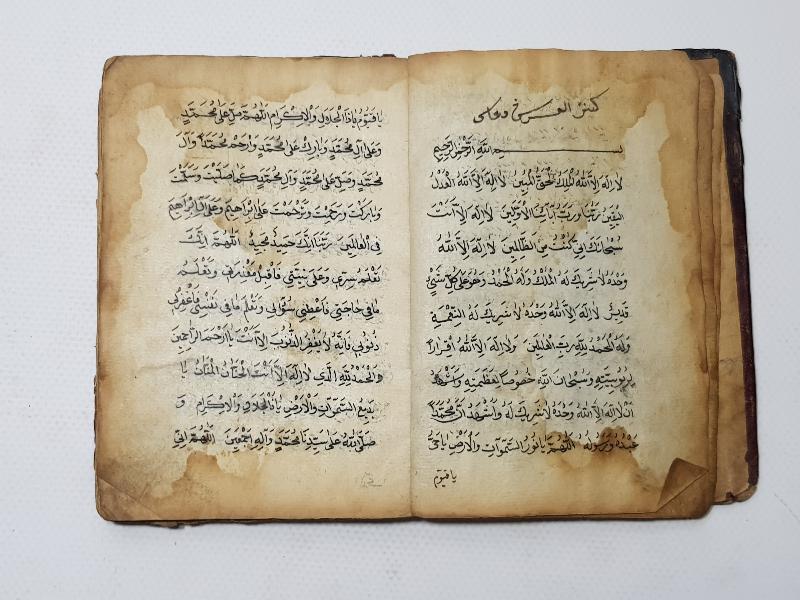 كنز العرش دعاسى
بسم الله الرحمن الرحيم
لا اله الا الله الملك الحق المبين لا اله الا الله العدل
اليقين ربنا ورب آبائنا الاولين لا اله الا انت
سبحانك انى كنت من الظالمين لا اله الا الله
وحده لا شريك له الملك وله الحمد وهو على كل شئ
قدير لا اله الا الله وحده لا شريك له النعمة
وله الحمد لله رب العالمين ولا اله الا الله اقرارا
بربوبيته وسبحان الله خضوصا لعظمته واشهد
ان لا اله الا الله وحده لا شريك له واشهد ان محمدا
عبده ورسوله اللهم يا نور السموات والارض يا حى
يا قيوم
يا قيوم يا ذا الجلال والاكرام اللهم صل على محمد
وعلى آل محمد وبارك على محمد وارحم محمدا وآل
محمد وصل على محمد وآل محمد كما صليت وسلمت
وباركت ورحمت وترحمت على ابراهيم وعلى آل ابراهيم
فى العالمين ربنا انك حميد مجيد اللهم انك
تعلم سرى وعلى نيتى فاقبل معذرتى وتعلم
ما فى حاجتى فاعطنى سؤالى وتعلم ما فى نفسى فاغفرلى
ذنوبى فانه لا يغفر الذنوب الا انت يا ارحم الراحمين
والحمد لله الذى لا اله الا انت الحنان المنان يا
بديع السموات والارض يا ذا الجلال والاكرام و
صلى الله على سيدنا محمد وآله اجمعين اللهم انى